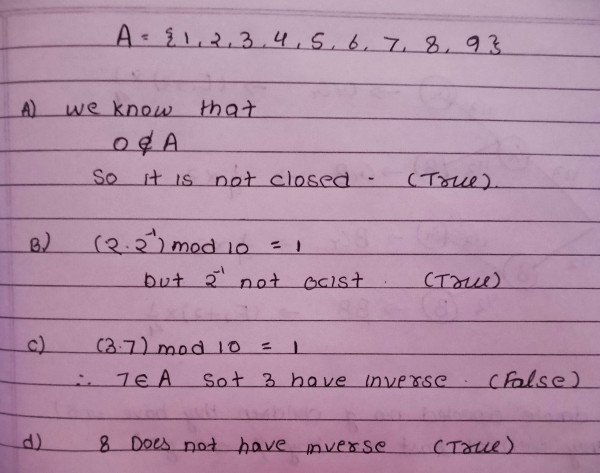 A = {1, 2, 3, 4, 5, 6, 7, 8, 9}
A) we know that
0 ∉ A
So it is not closed. (True).
B) (2.2⁻¹) mod 10 = 1
but 2⁻¹ not ocist. (True)
c) (3.7) mod 10 = 1
∴ 7 ∈ A Sot 3 have inverse. (False)
d) 8 Does not have inverse (True)